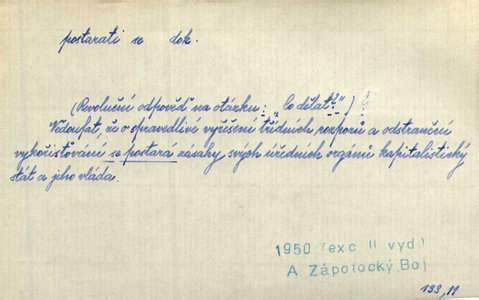 postarati se dok.
(Revoluční odpověď na otázku: „Co dělat?")
Vzdoufat, že o spravedlivé vyřešení třídních rozporů a odstranění
vykořisťování se postará zásahy svých úředních orgánů kapitalistický
stát a jeho vláda.
1950 (exc II vyd)
A Zápotocký Boj
133,11